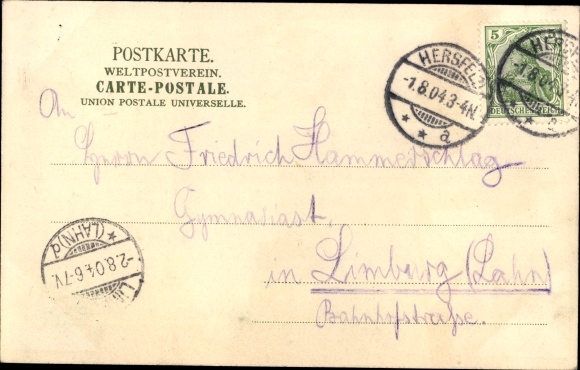 POSTKARTE.
WELTPOSTVEREIN.
CARTE-POSTALE.
UNION POSTALE UNIVERSELLE.
5
DEUTSCHES REICH
HERSFELD
-1.8.04.3-4N.
* * a
HERSF
-1.8.04
An
Herrn Friedrich Hammerschlag
Gymnasiast,
in Limburg (Lahn)
Bahnhofstraße.
(LAHN) *
-2.8.04.6-7V.